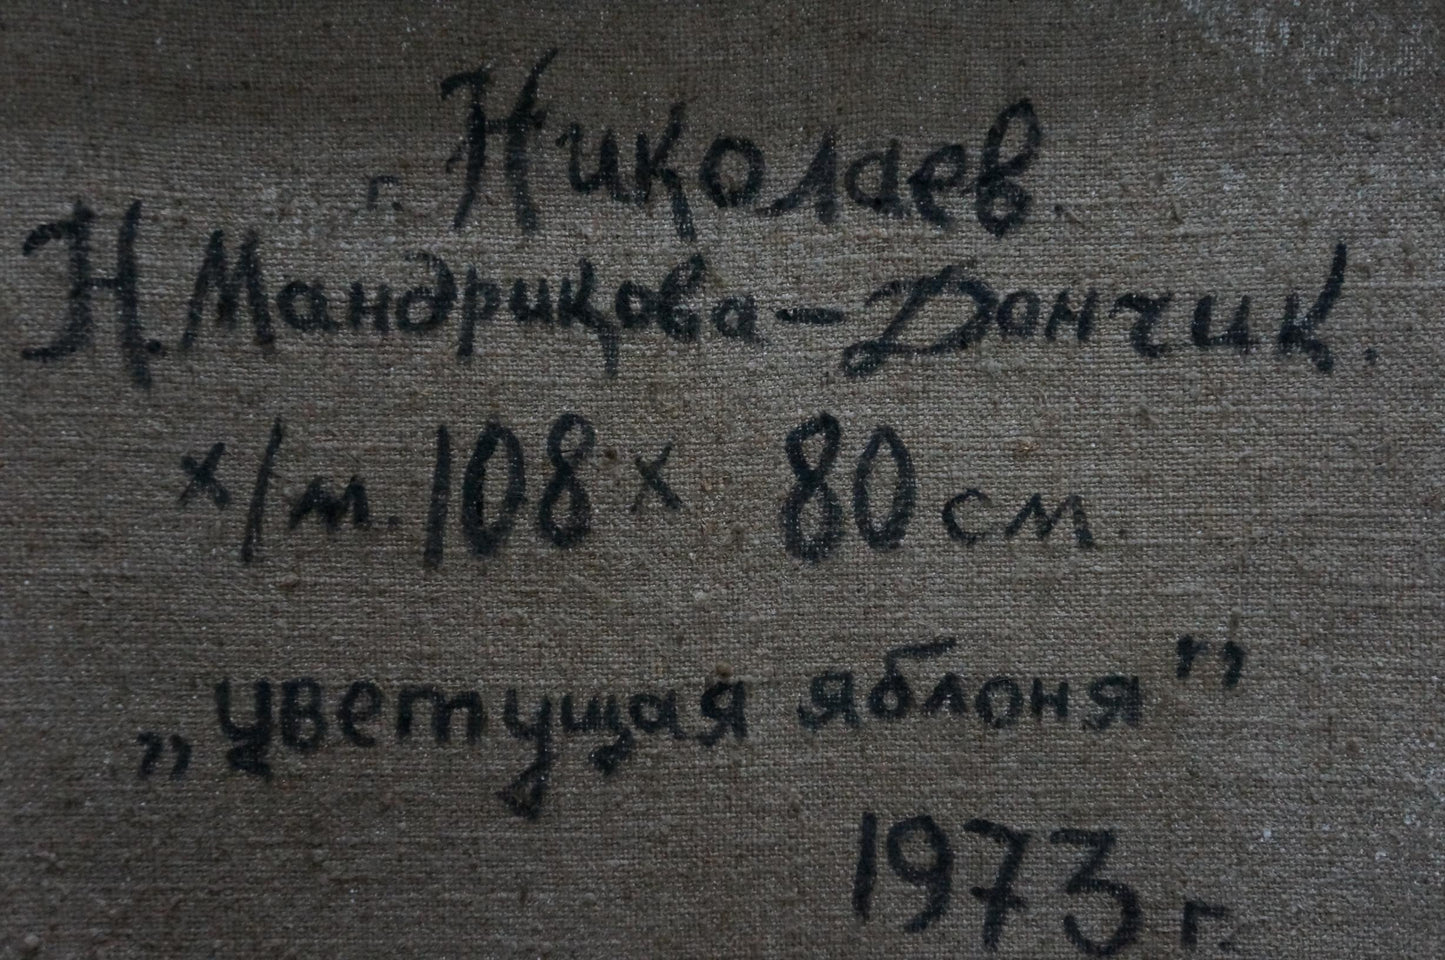 г. Николаев.
Н. Мандрикова-Дончик.
х/м. 108 х 80 см.
„цветущая яблоня"
1973 г.